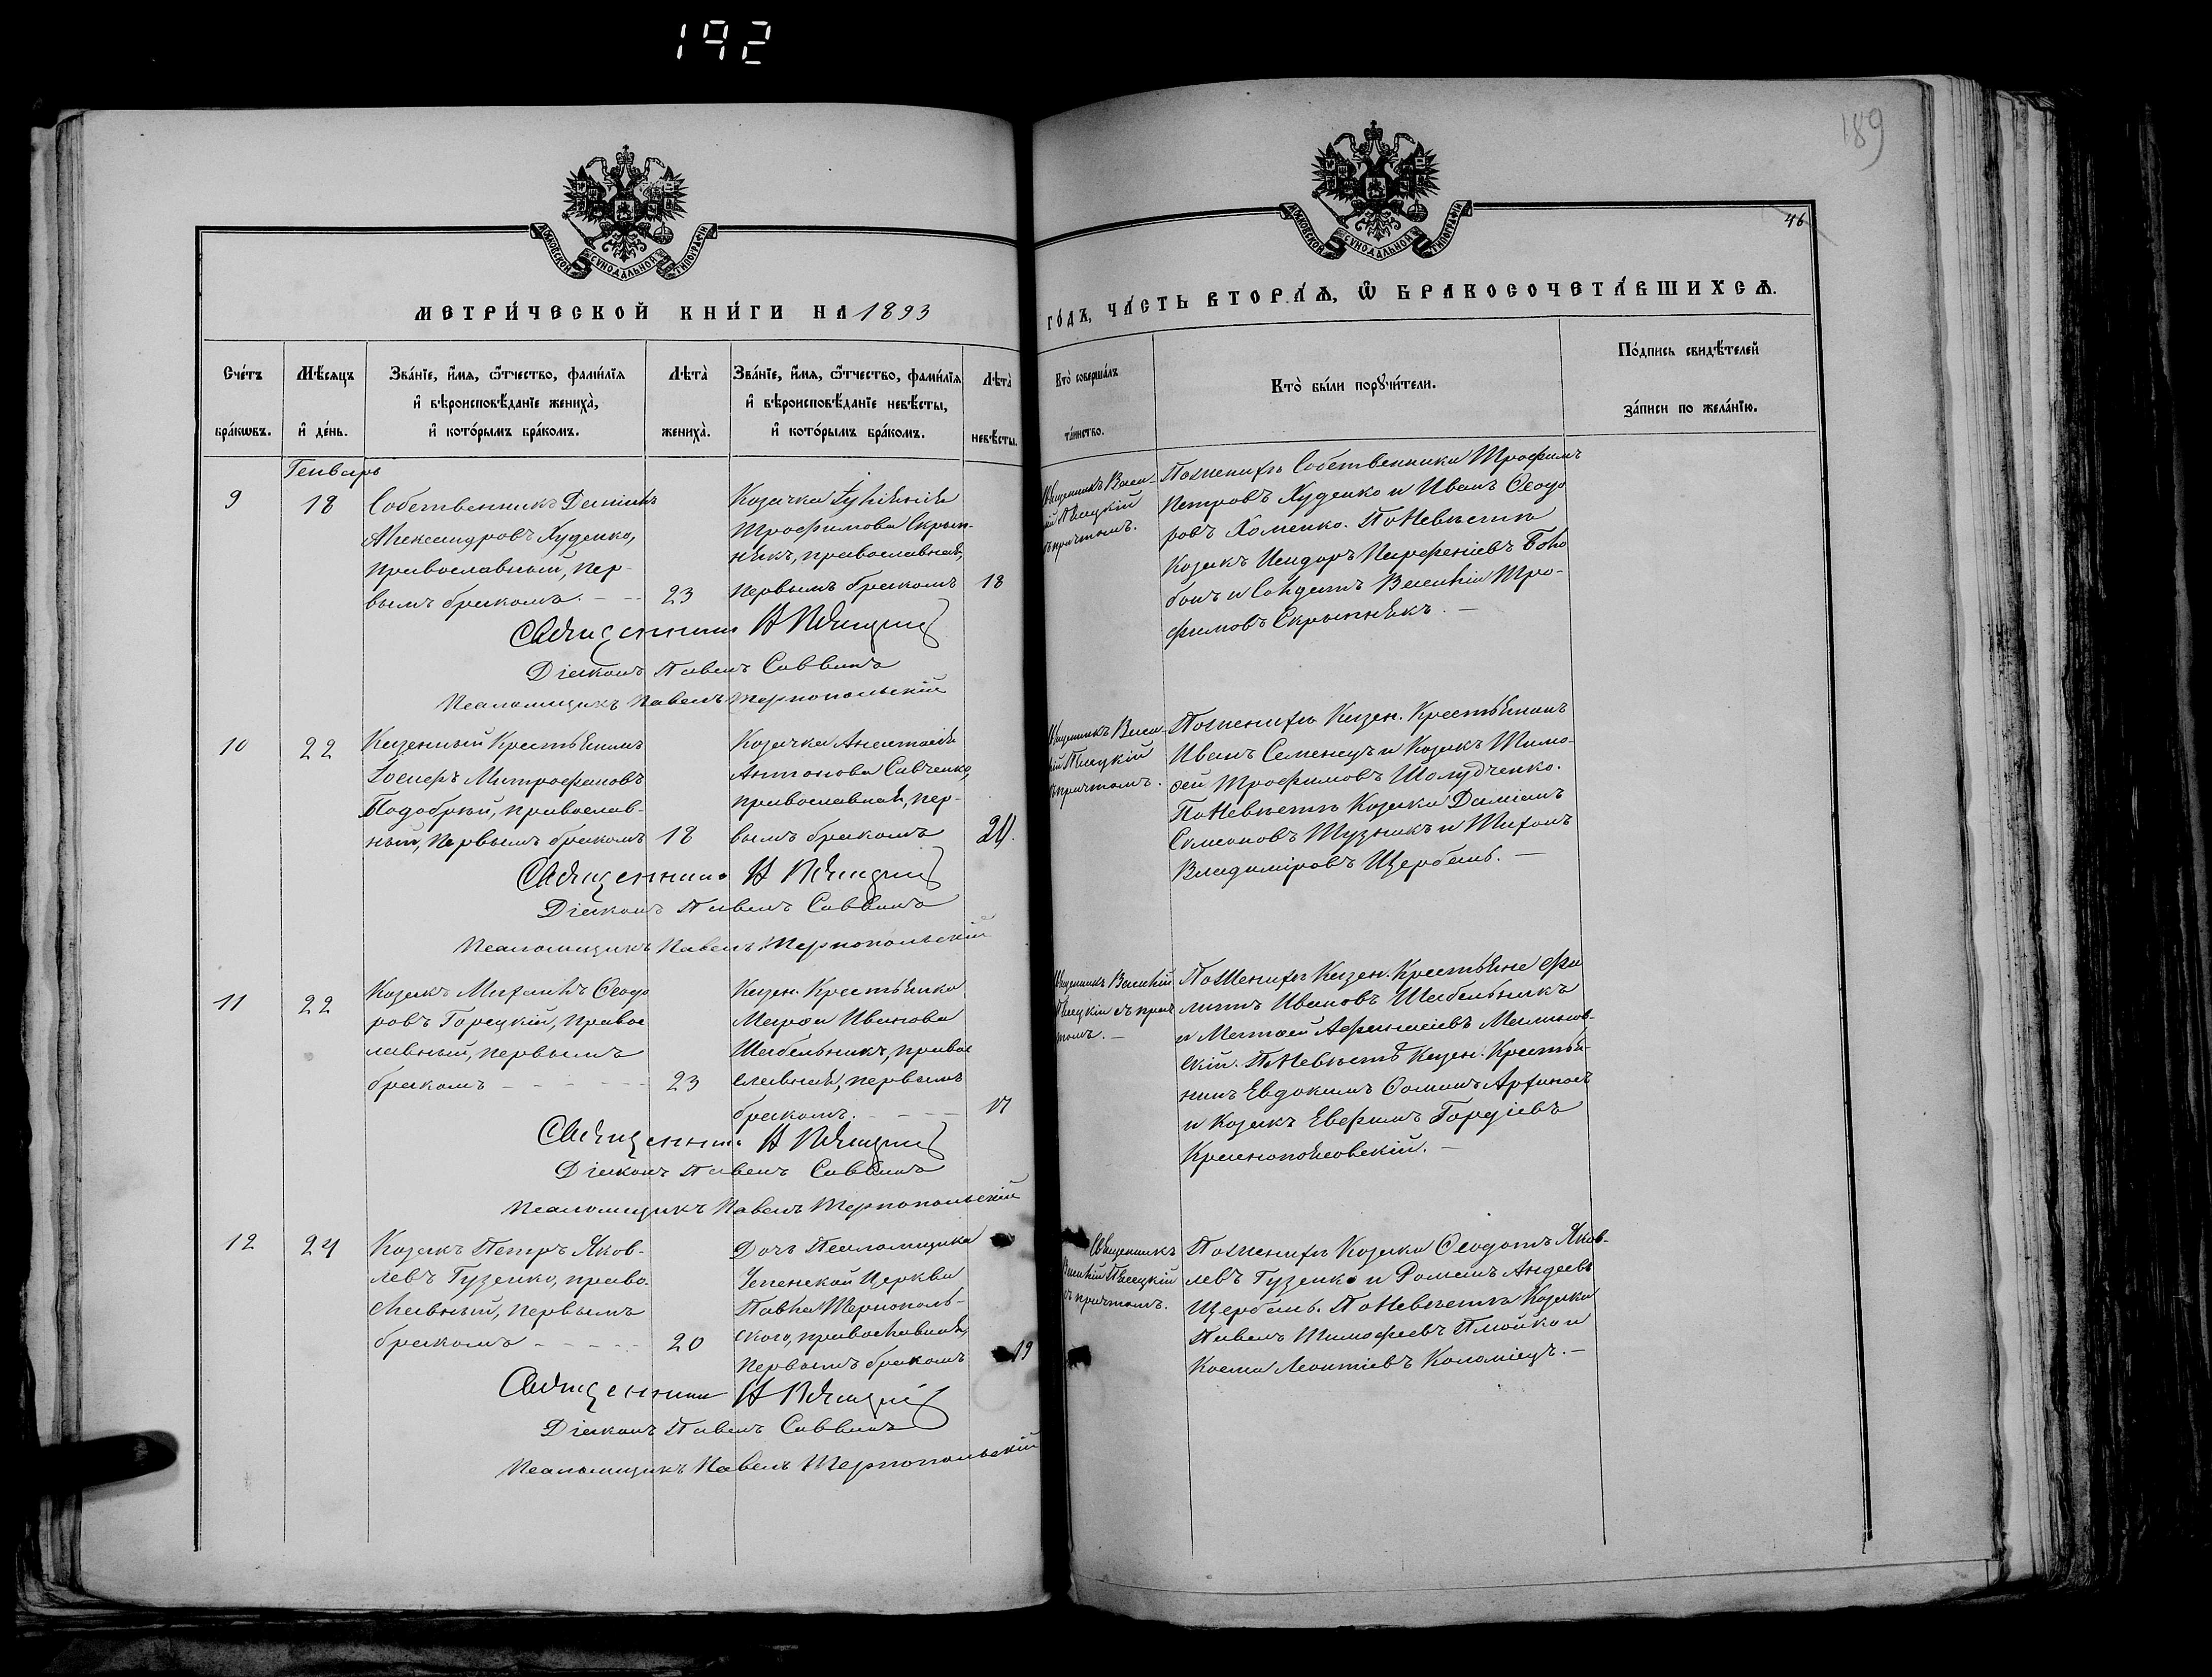 192
189
46
МОСКОВСКОЙ СѴНОДАЛЬНОЙ ТИПОГРАФІИ
МОСКОВСКОЙ СѴНОДАЛЬНОЙ ТИПОГРАФІИ
МЕТРИ́ЧЕСКОЙ КНИ́ГИ НА 1893
ГО́ДЪ, ЧА́СТЬ ВТОРА́Ѧ, Ѿ БРАКОСОЧЕТА́ВШИХСѦ.
Сче́тъ бра́кѡвъ.
Мѣ́сяцъ и҆ де́нь.
Зва́нїе, и҆́мѧ, ѻ҆́тчество, фами́лїѧ
и҆ вѣроисповѣ́данїе жениха̀,
и҆ кото́рымъ бра́комъ.
Лѣта̀ жениха̀.
Зва́нїе, и҆́мѧ, ѻ҆́тчество, фами́лїѧ
и҆ вѣроисповѣ́данїе невѣ́сты,
и҆ кото́рымъ бра́комъ.
Лѣта̀ невѣ́сты.
Кто̀ соверша́лъ та́инство.
Кто̀ бы́ли порꙋчи́тели.
По́дпись свидѣ́телей
за́писи по жела́нїю.
Генварь
9
18
Собственникъ Даміанъ
Александровъ Худенко,
православный, пер-
вымъ бракомъ.
23
Козачка
Трофимова Скрып-
никъ, православная,
первымъ бракомъ
18
Священникъ Васи-
лій Пѣвецкій
съ причтомъ.
По женихѣ Собственники Трофимъ
Петровъ Худенко и Иванъ Ѳеодо
ровъ Хоменко. По невѣстѣ
Козакъ Исидоръ Парфеніевъ
и Солдатъ Василій Тро-
фимовъ Скрыпникъ. —
Священникъ
Діаконъ Павелъ Саввинъ
Псаломщикъ Павелъ Тернопольскій
10
22
Казенный Крестьянинъ
Іосифъ Митрофановъ
Подобрый, православ-
ный, первымъ бракомъ
18
Козачка Анастасія
Антонова Савченко,
православная, пер-
вымъ бракомъ
21.
Священникъ Васи-
лій Пѣвецкій
съ причтомъ.
По женихѣ Казен. Крестьянинъ
Иванъ Семенецъ и Козакъ Тимо-
ѳей Трофимовъ Шолудченко.
По невѣстѣ Козаки Даміанъ
Симеоновъ Тузникъ и Тихонъ
Владиміровъ Щербань. —
Священникъ
Діаконъ Павелъ Саввинъ
Псаломщикъ Павелъ Тернопольскій
11
22
Козакъ Михаилъ Ѳеодо
ровъ Горецкій, правос
лавный, первымъ
бракомъ
23
Казен. Крестьянка
Марѳа Иванова
Шабельникъ, правос
лавная, первымъ
бракомъ.
17
Священникъ Василій
Пѣвецкій съ прич
томъ. —
По женихѣ Казен. Крестьяне Фи
липъ Ивановъ Шабельникъ
и Матѳей Аѳанасіевъ Малинов-
скій. По невѣстѣ Казен. Крестья-
нинъ Евдокимъ
и Козакъ Евфимъ Гордіевъ
Краснопольскій. —
Священникъ
Діаконъ Павелъ Саввинъ
Псаломщикъ Павелъ Тернопольскій
12
24
Козакъ Петръ Яков-
левъ Гузенко, право-
славный, первымъ
бракомъ
20
Дочь Псаломщика
Успенской Церкви
Павла Тернополь-
ского, православная,
первымъ бракомъ
19
Священникъ
Василій Пѣвецкій
съ причтомъ.
По женихѣ Козаки Ѳеодотъ Яков-
левъ Гузенко и Романъ Андеевъ
Щербань. По невѣстѣ Козаки
Павелъ Тимофеевъ Плюйко и
Косма Леонтіевъ Коломіецъ. —
Священникъ
Діаконъ Павелъ Саввинъ
Псаломщикъ Павелъ Тернопольскій